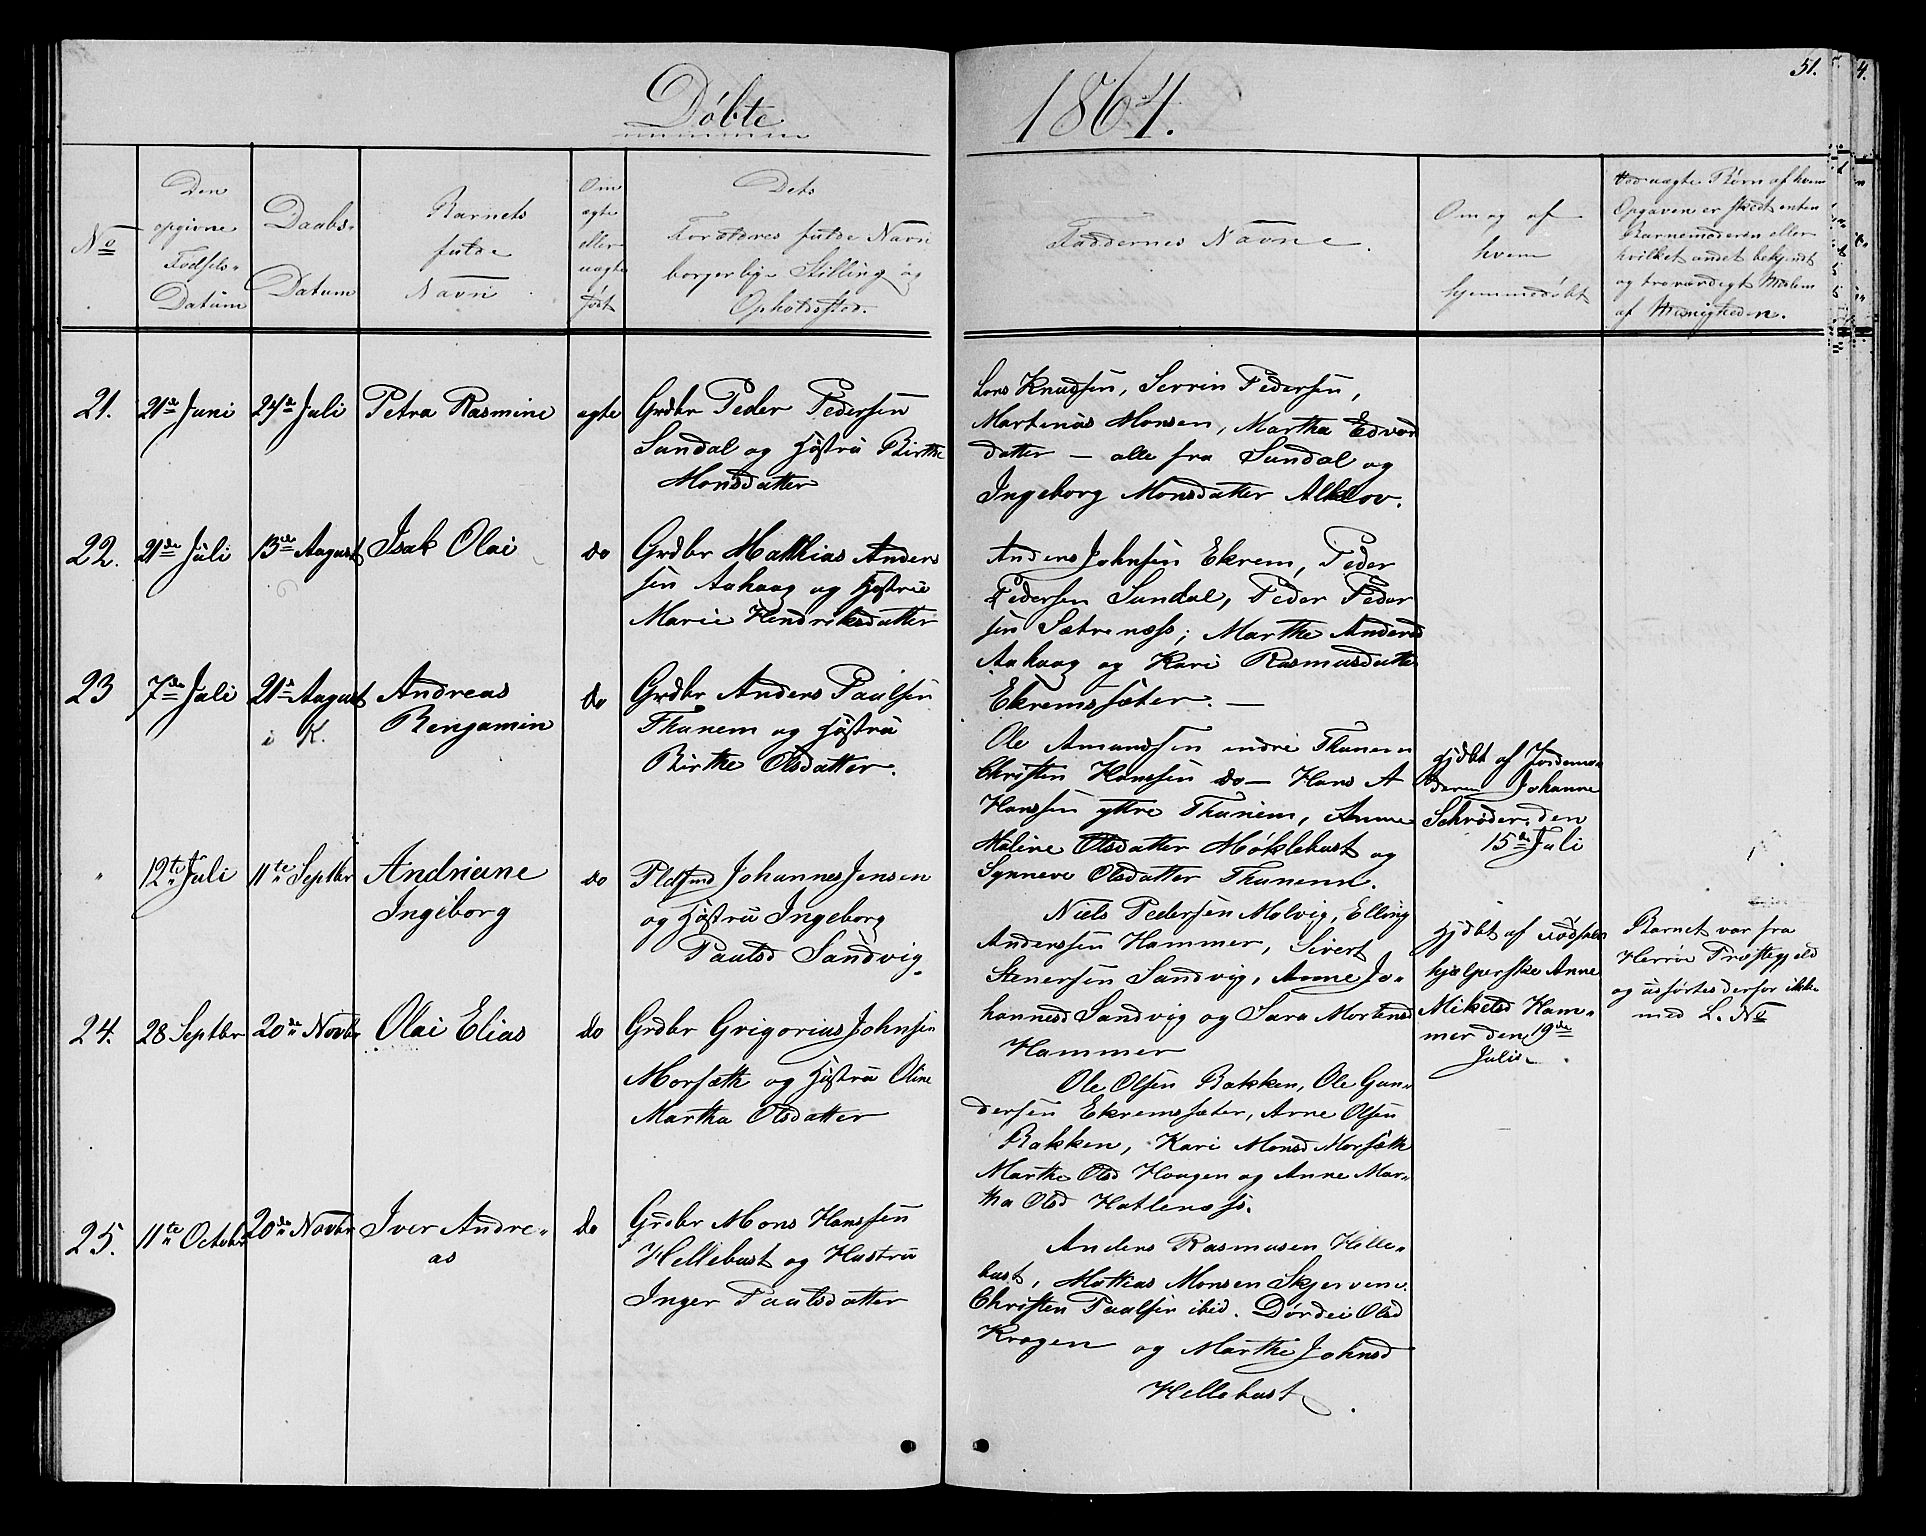 51.
Døbte
1864.
No
Den
opgivne
Fødsels-
Datum
Daabs-
Datum
Barnets
fulde
Navn
Om
ægte
eller
uægte
født
Dets
Forældres fulde Navn
borgerlige Stilling og
Opholdssted.
Faddernes Navne.
Om og af
hvem
hjemmedøbt
Ved uægte Børn af hvem
Opgaven er skedt enten
Barnemoderen eller
hvilket andet bekjendt
og troværdigt Medlem
af Menigheden.
21.
21de Juni
24de Juli
Petra Rasmine
ægte
Grdbr Peder Pedersen
Sundal og Hustru Birthe
Monsdatter
Lars Knudsen, Serrin Pedersen,
Martinus Monsen, Martha Edvard
datter — alle fra Sundal og
Ingeborg Monsdatter Alklov.
22.
21de Juli
13de August
Isak Olai
do
Grdbr Mathias Anders
sen Aahaag og Hustrue
Marie Hendriksdatter
Anders Johnsen Ekrem, Peder
Pedersen Sundal, Peder Peder
sen Sætrenæss, Marthe Andersd
Aahaag og Kari Rasmusdatter
Ekremssæter. —
23
7de Juli
21de August
i K.
Andreas
Bengamin
do
Grdbr Anders Paulsen
Thunem og Hustru
Birthe Olsdatter.
Ole Amundsen indre Thunem
Christen Hanssen do — Hans A
Hanssen yttre Thunem, Anne
Maline Olsdatter Møklebust og
Synneve Olsdatter Thunem.
Hjdbt af Jordemo-
deren Johanne
Schrøder, den
15de Juli
"
12te Juli
11te Septbr
Andriane
Ingeborg
do
Pldsmd Johannes Jensen
og Hustru Ingeborg
Paulsd Sandvig.
Niels Pedersen Molvig, Elling
Anderssen Hammer, Sivert
Stenersen Sandvig, Anne Jo-
hannesd Sandvig og Sara Mortensd
Hammer
Hjdbt af Fødsels
hjelperske Anne
Mikelsd Ham-
mer den 19de
Juli.
Barnet var fra
Herrøe Præstegjeld
og udførtes derfor ikke
med L. No
24.
28 Septbr
20de Novbr
Olai Elias
do
Grdbr Grigorius Johnsen
Morsæth og Hustru Oline
Martha Olsdatter
Ole Olsen Bakken, Ole Gun-
dersen Ekremssæter, Arne Olsen
Bakken, Kari Monsd Morsæth
Marthe Olsd Haagen og Anne Mar-
tha Olsd Hatlenæss.
25.
11te Octobr
20de Novbr
Iver Andre-
as
do
Grdbr Mons Hanssen
Hellebust og Hustru
Inger Paulsdatter
Anders Rasmusen Helle-
bust, Mattias Monsen Skjervene
Christen Paulsen ibid. Dørdei Olsd
Krogen og Marthe Johnsd
Hellebust.